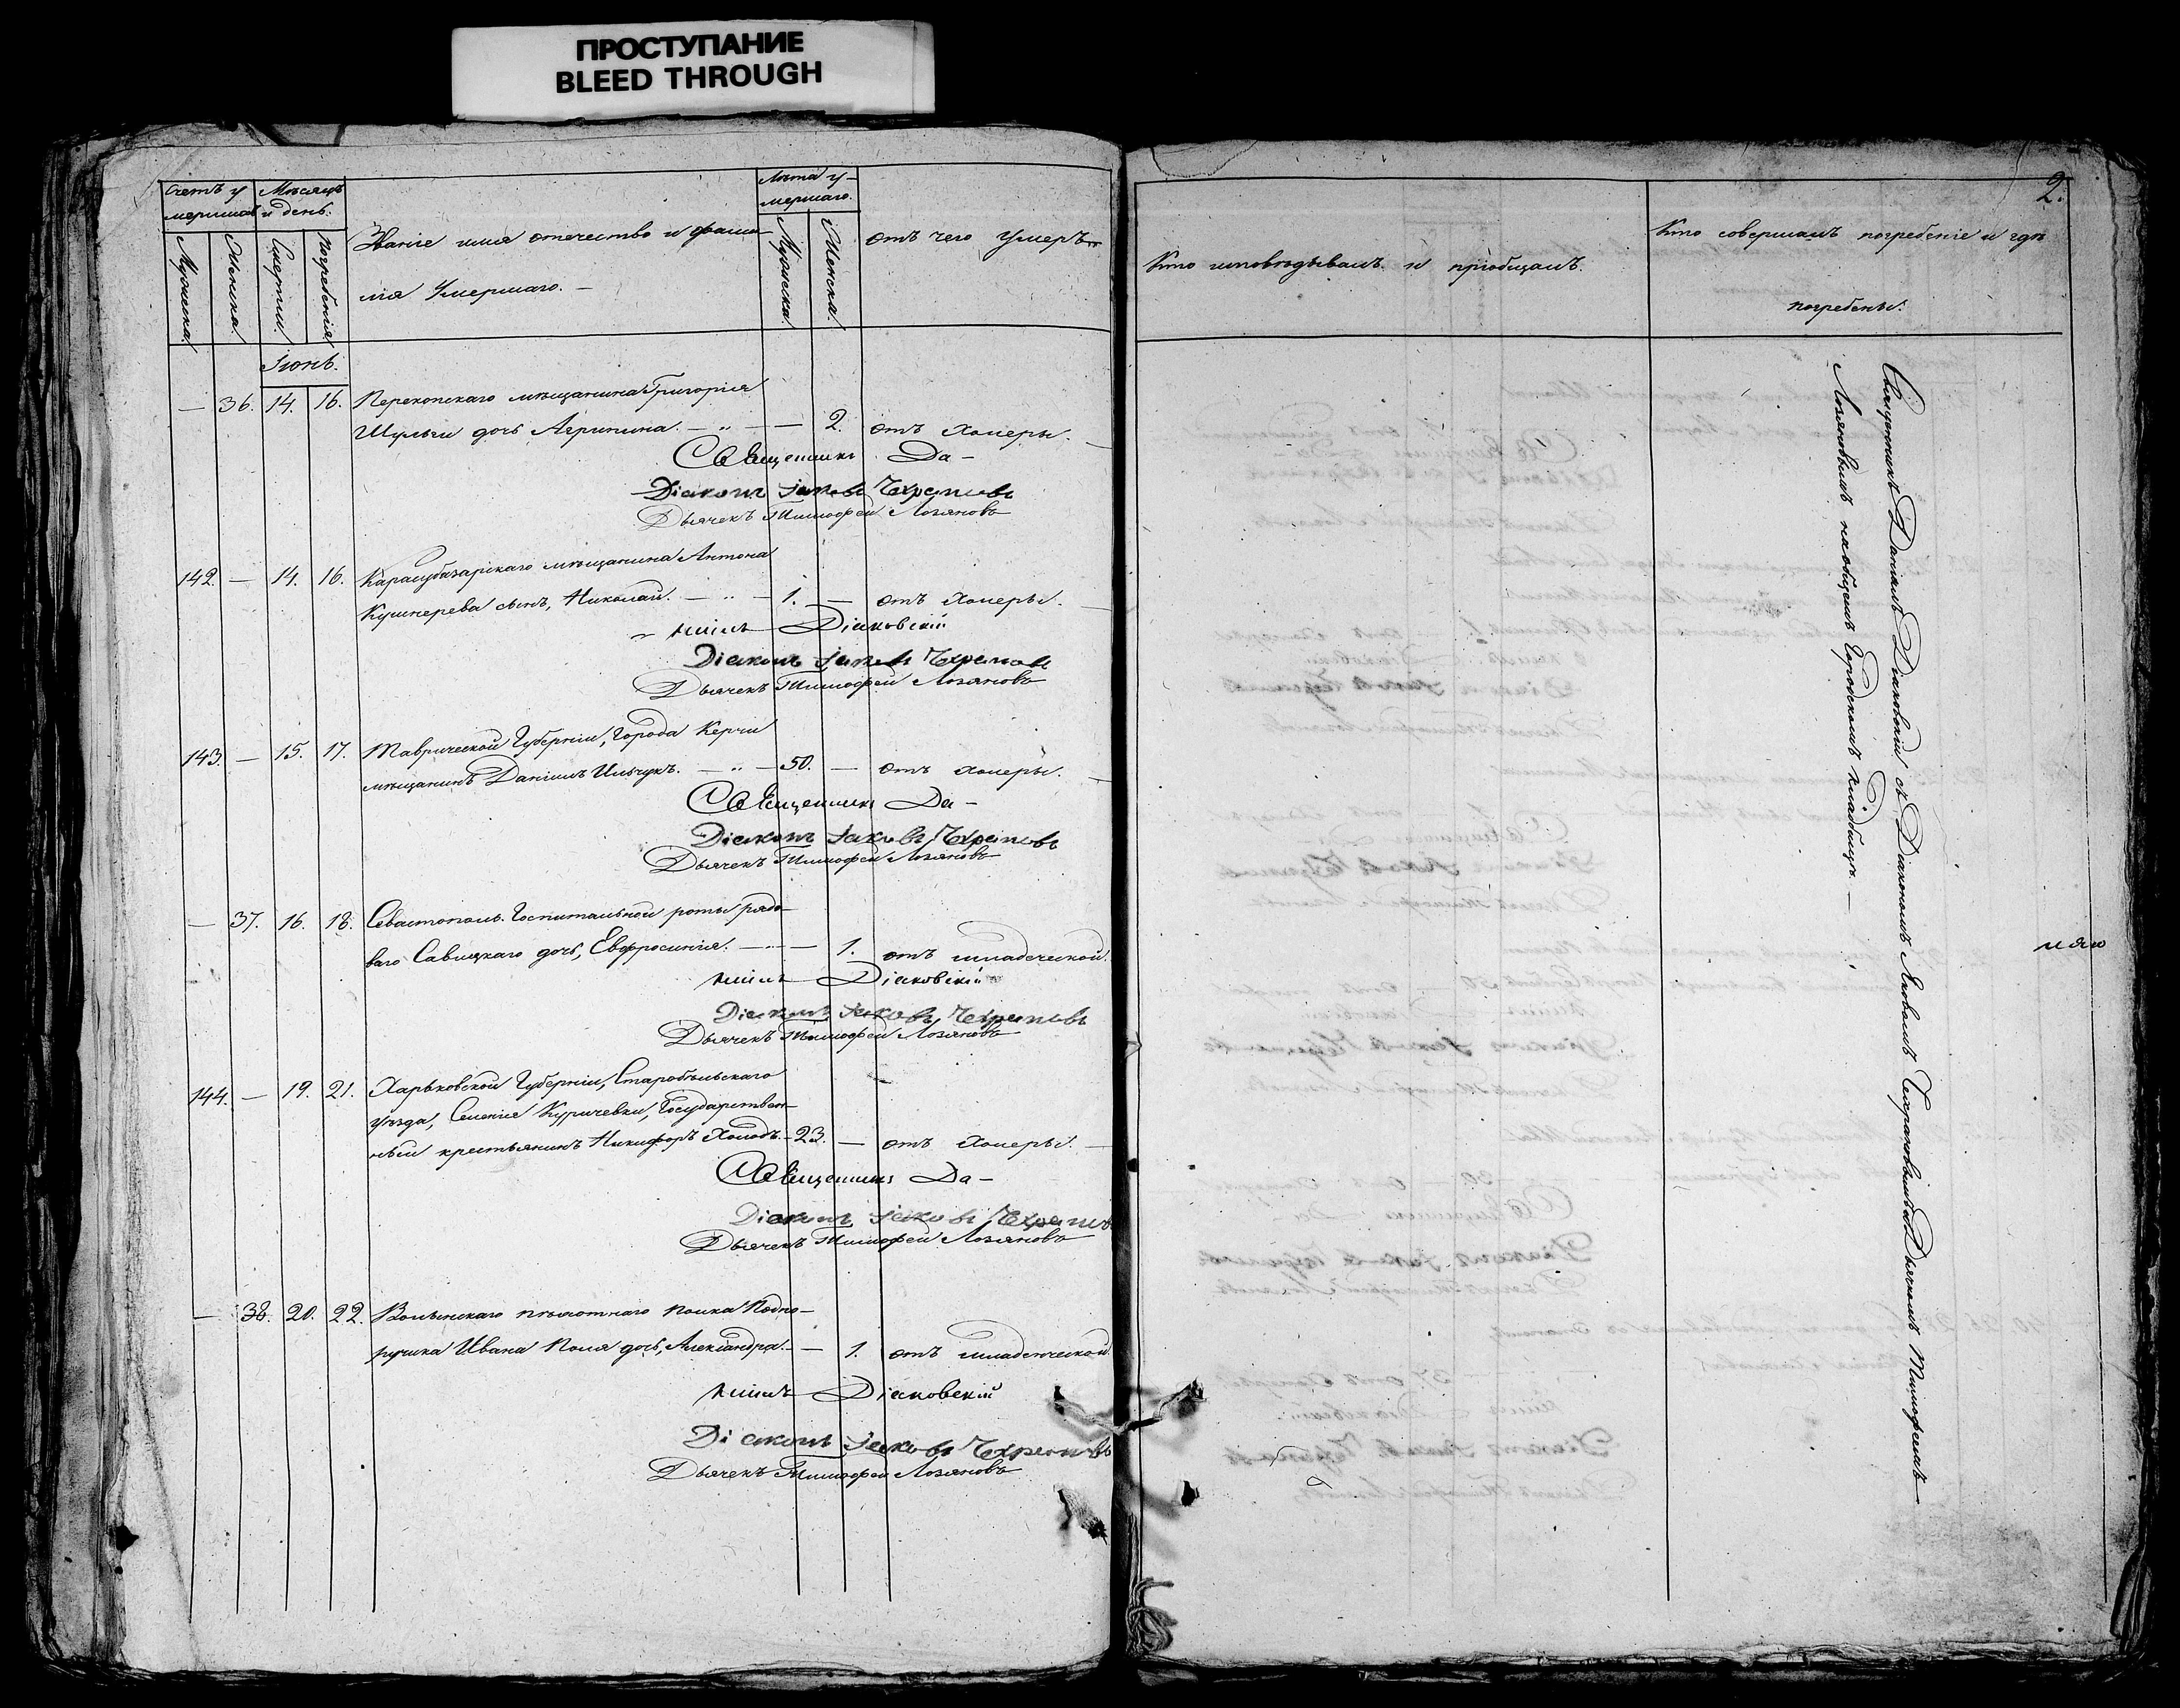 ПРОСТУПАНИЕ
BLEED THROUGH
Счетъ у
мершихъ
Мѣсяцъ
и день.
Мужеска.
Женска.
Смерти.
Погребенія
Званіе имя отечество и фами
лія Умершаго. —
Лѣта у-
мершаго.
Мужеска.
Женска.
отъ чего Умеръ
Iюнь.
— 36. 14. 16. Перекопскаго мѣщанина Григорія
Шульги дочь Агрипина. — „ — — 2. отъ холеры. —
Священникъ Да-
Діаконъ Іаковъ Чехрановъ
Дьячекъ Тимофей Лозяновъ
142. — 14. 16. Карасубазарскаго мѣщанина Антона
Кушнерева сынъ, Николай. — „ — 1. — отъ холеры. —
ніилъ Діаковскій
Діаконъ Іаковъ Чехрановъ
Дьячекъ Тимофей Лозяновъ
143. — 15. 17. Таврической Губерніи, Города Керчи
мѣщанинъ Даніилъ Ильчукъ. — „ — 50. — отъ холеры. —
Священникъ Да-
Діаконъ Іаковъ Чехрановъ
Дьячекъ Тимофей Лозяновъ
— 37. 16. 18. Севастополь. Госпитальной роты рядо-
ваго Савицкаго дочь, Евфросинія. — „ — 1. отъ младенческой.
ніилъ Діаковскій
Діаконъ Іаковъ Чехрановъ
Дьячекъ Тимофей Лозяновъ
144. — 19. 21. Харьковской Губерніи, Старобѣльскаго
уѣзда, Селенія Куричевки, Государствен-
ный крестьянинъ Никифоръ Холодъ. — 23. — отъ холеры. —
Священникъ Да-
Діаконъ Іаковъ Чехрановъ
Дьячекъ Тимофей Лозяновъ
— 38. 20. 22. Волынскаго пѣхотнаго полка Подпо-
ручика Ивана Поля дочь, Александра. — — 1. отъ младенческой.
ніилъ Діаковскій
Діаконъ Іаковъ Чехрановъ
Дьячекъ Тимофей Лозяновъ
2.
Кто исповѣдывалъ и пріобщалъ.
Кто совершалъ погребеніе и гдѣ
погребены.
Священникъ Даніилъ Діаковскій съ Діакономъ Яковомъ Чехрановымъ и Дьячкомъ Тимофеемъ
Лозяновымъ на общемъ Городскомъ кладбищѣ. —